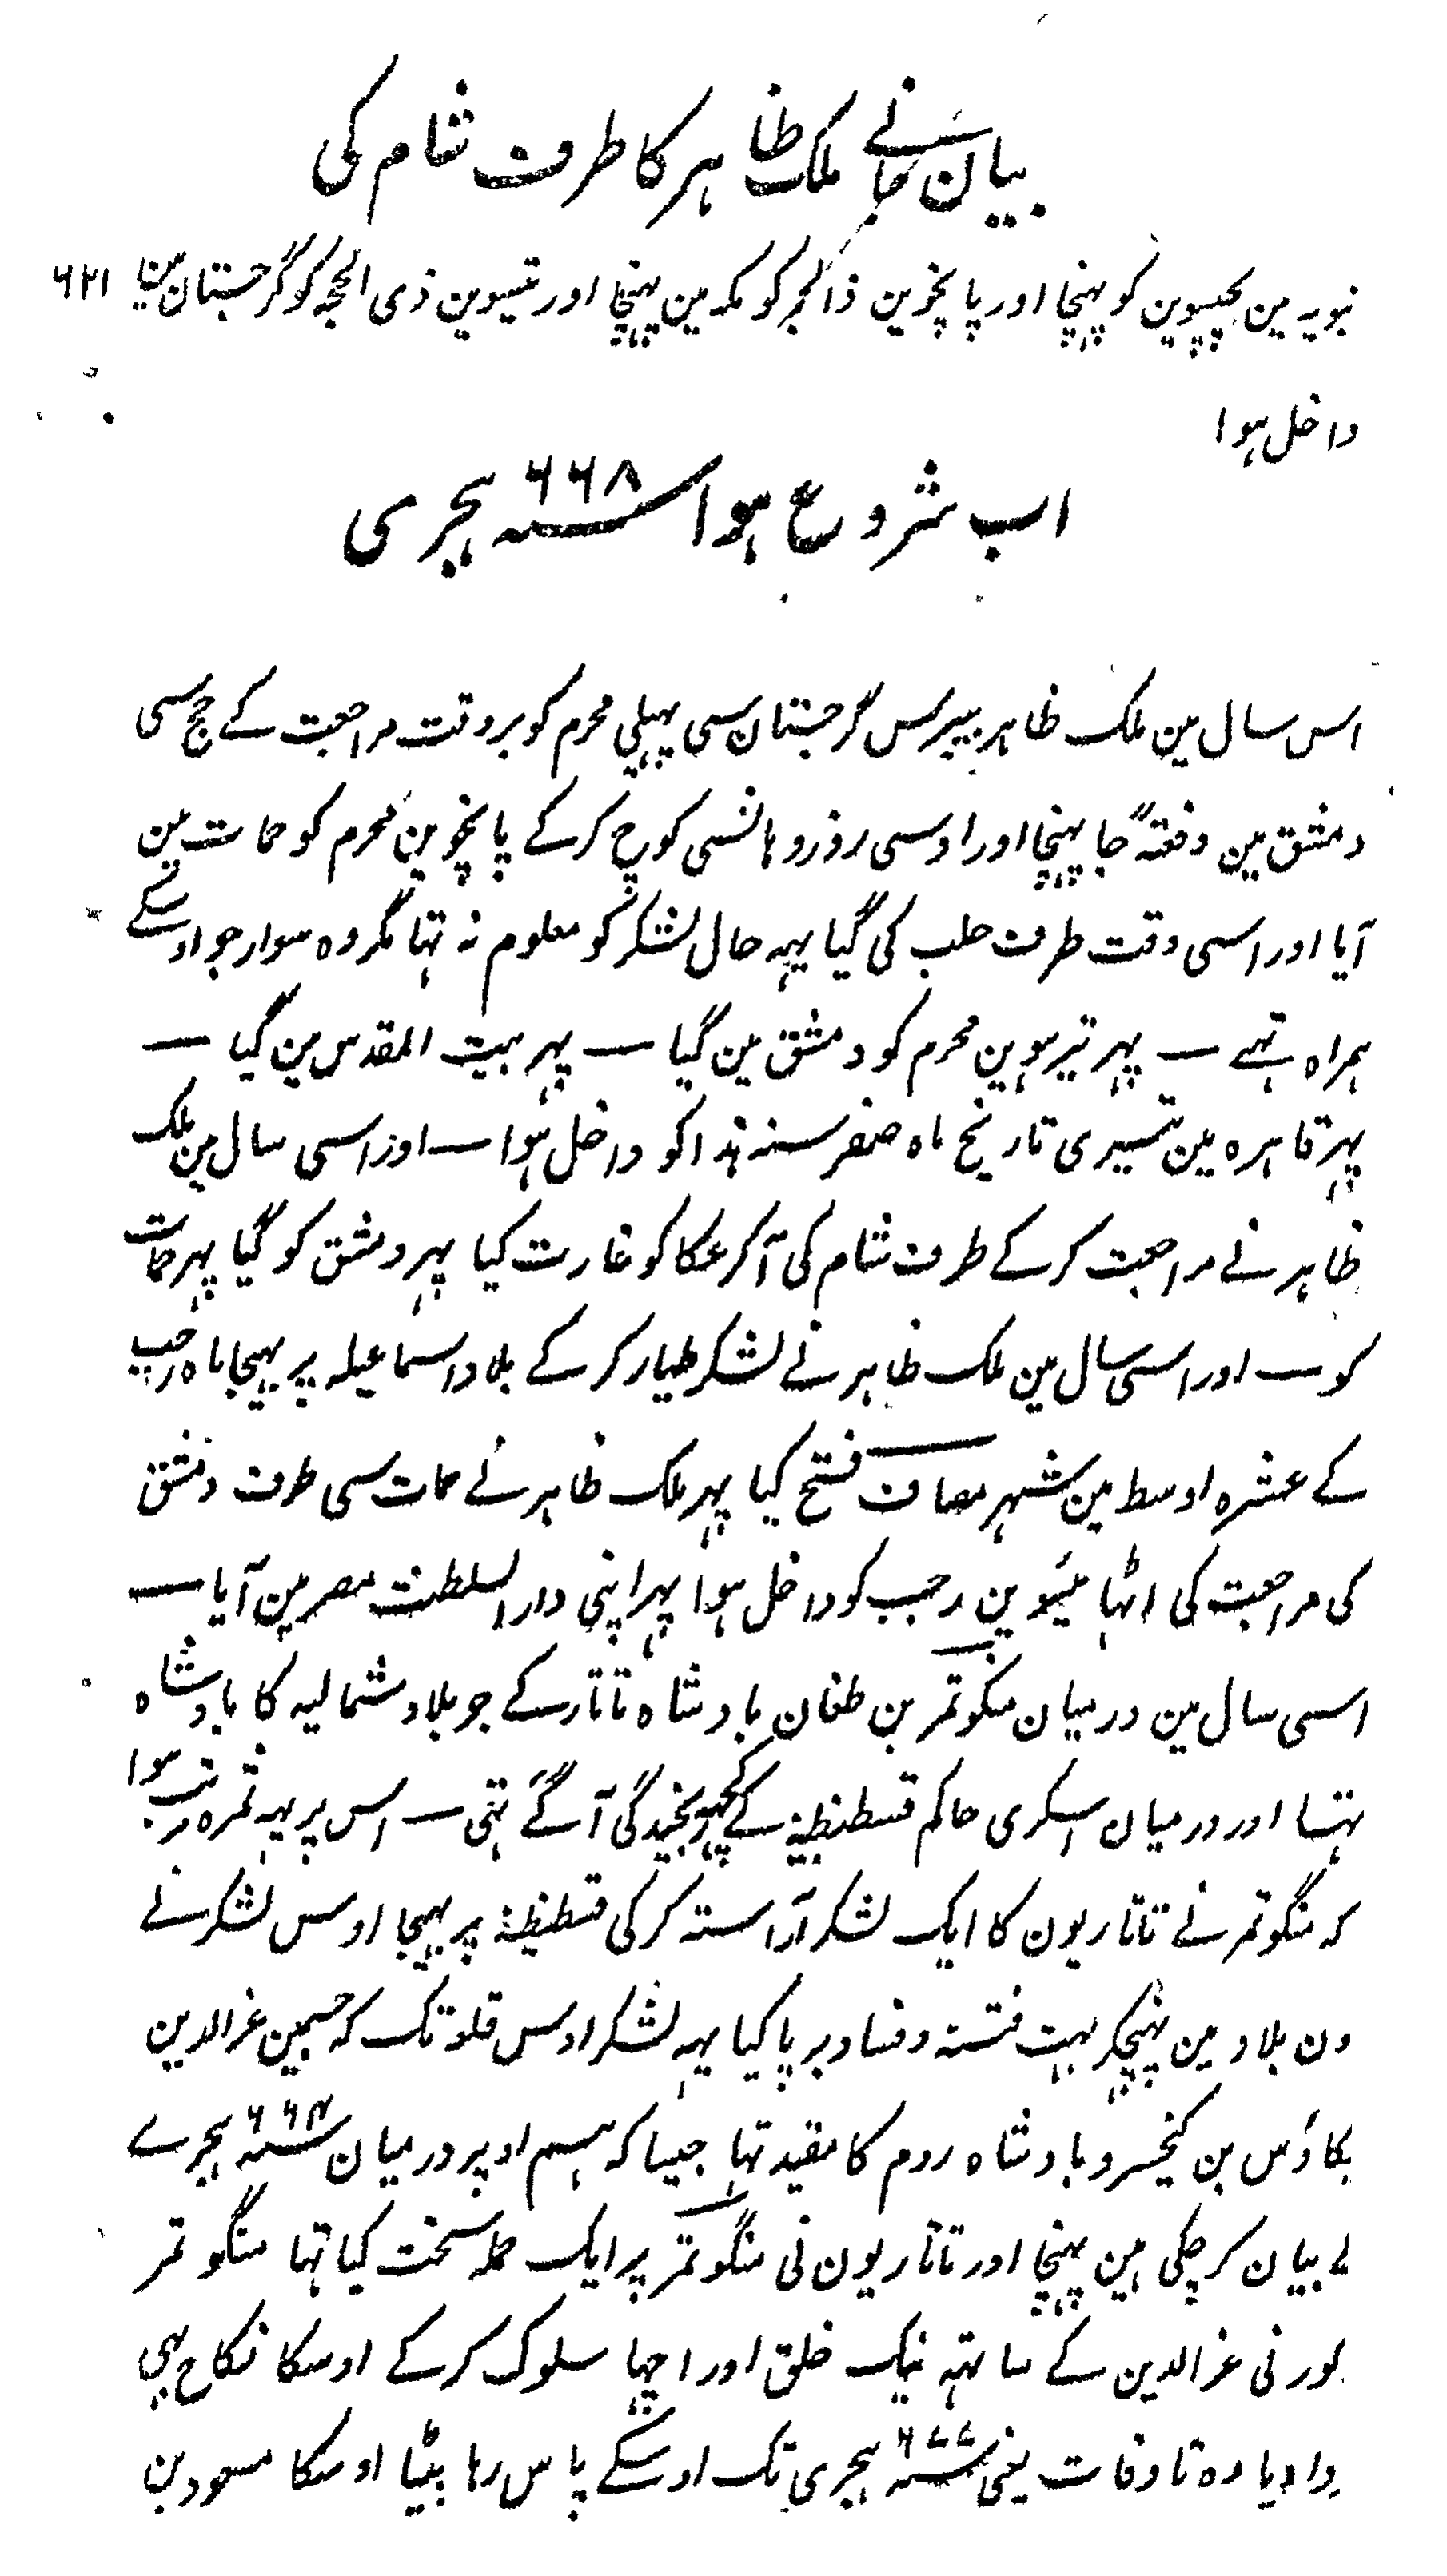 بیان جانے ملک ظاہر کا طرف شام کی
نبویہ مین پچیسوین کو پہنچا اور پانچوین ذالحجہ کو مکہ مین پہنچا اور تیسوین ذی الحجہ کو گرجستان مین ۶۲۱
داخل ہوا
اب شروع ہوا سنہ ۶۶۸ ہجری
اس سال مین ملک ظاہر بیبرس گرجستان سی پہلی محرم کو بروقت مراجعت کے حج سی
دمشق مین دفعۃً جا پہنچا اور اوسی روز وہانسی کوچ کر کے پانچوین محرم کو حمات مین
آیا اور اسی وقت طرف حلب کی گیا یہہ حال لشکر کو معلوم نہ تہا مگر وہ سوار جو اوسکے
ہمراہ تہے — پہر تیرہوین محرم کو دمشق مین گیا — پہر بیت المقدس مین گیا —
پہر قاہرہ مین تیسری تاریخ ماہ صفر سنہ ہذا کو داخل ہوا — اور اسی سال مین ملک
ظاہر نے مراجعت کر کے طرف شام کی آکر عکا کو غارت کیا پہر دمشق کو گیا پہر حمات
کو — اور اسی سال مین ملک ظاہر نے لشکر طیار کر کے بلاد اسماعیلہ پر بہیجا ماہ رجب
کے عشرہ اوسط مین شہر مصاف فتح کیا پہر ملک ظاہر نے حمات سی طرف دمشق
کی مراجعت کی اٹہائیسوین رجب کو داخل ہوا پہر اپنی دار السلطنت مصر مین آیا —
اسی سال مین درمیان منکوتمر بن طغان بادشاہ تاتار کے جو بلاد شمالیہ کا بادشاہ
تہا اور درمیان اسکری حاکم قسطنطیۃ کے کچہہ رنجیدگی آگئے تہی — اس پر یہہ ثمرہ مرتب ہوا
کہ منگوتمر نے تاتاریون کا ایک لشکر آراستہ کر کی قسطنطیۃ پر بہیجا اوس لشکر نے
ون بلاد مین پہنچکر بہت فتنہ و فساد برپا کیا یہہ لشکر اوس قلعہ تک کہ جسمین عزالدین
یکاؤس بن کیخسرو بادشاہ روم کا مقید تہا جیسا کہ ہم اوپر درمیان سنہ ۶۶۲ ہجرے
لے بیان کر چکی ہین پہنچا اور تاتاریون نی منگوتمر پر ایک حملہ سخت کیا تہا منگو تمر
لور نی عزالدین کے ساتہہ نیک خلق اور اچہا سلوک کر کے اوسکا نکاح بہی
وا دیا وہ تا وفات یعنی سنہ ۶۷۷ ہجری تک اوسکے پاس رہا بیٹا اوسکا مسعود بن